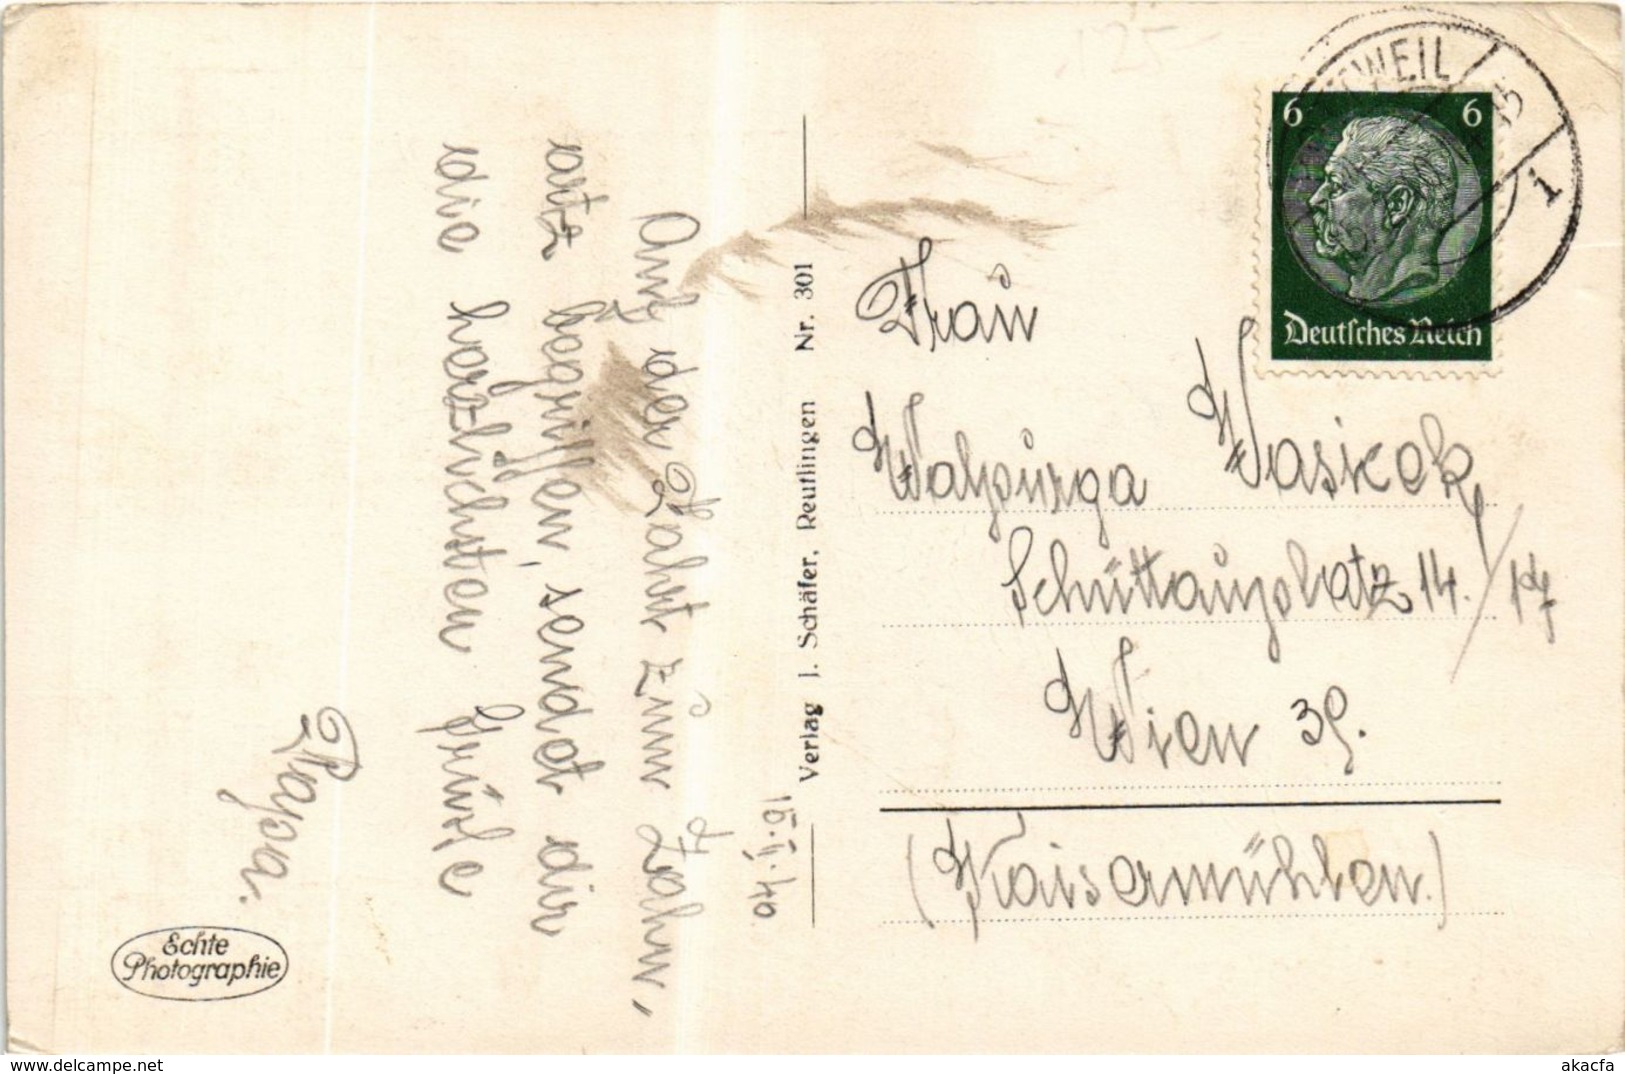 16.II.40
Auf der Fahrt zum Zahn-
artz begriffen, sendet dir
die herzlichsten Grüsse
Papa.
Echte
Photographie
Verlag J. Schäfer, Reutlingen Nr. 301
125-
WEIL
15
i
6 6
Deutsches Reich
Frau
Walpurga Wasicek
Schüttauplatz 14/17
Wien
(Kaisermühlen.)
www.delcampe.net
akacfa